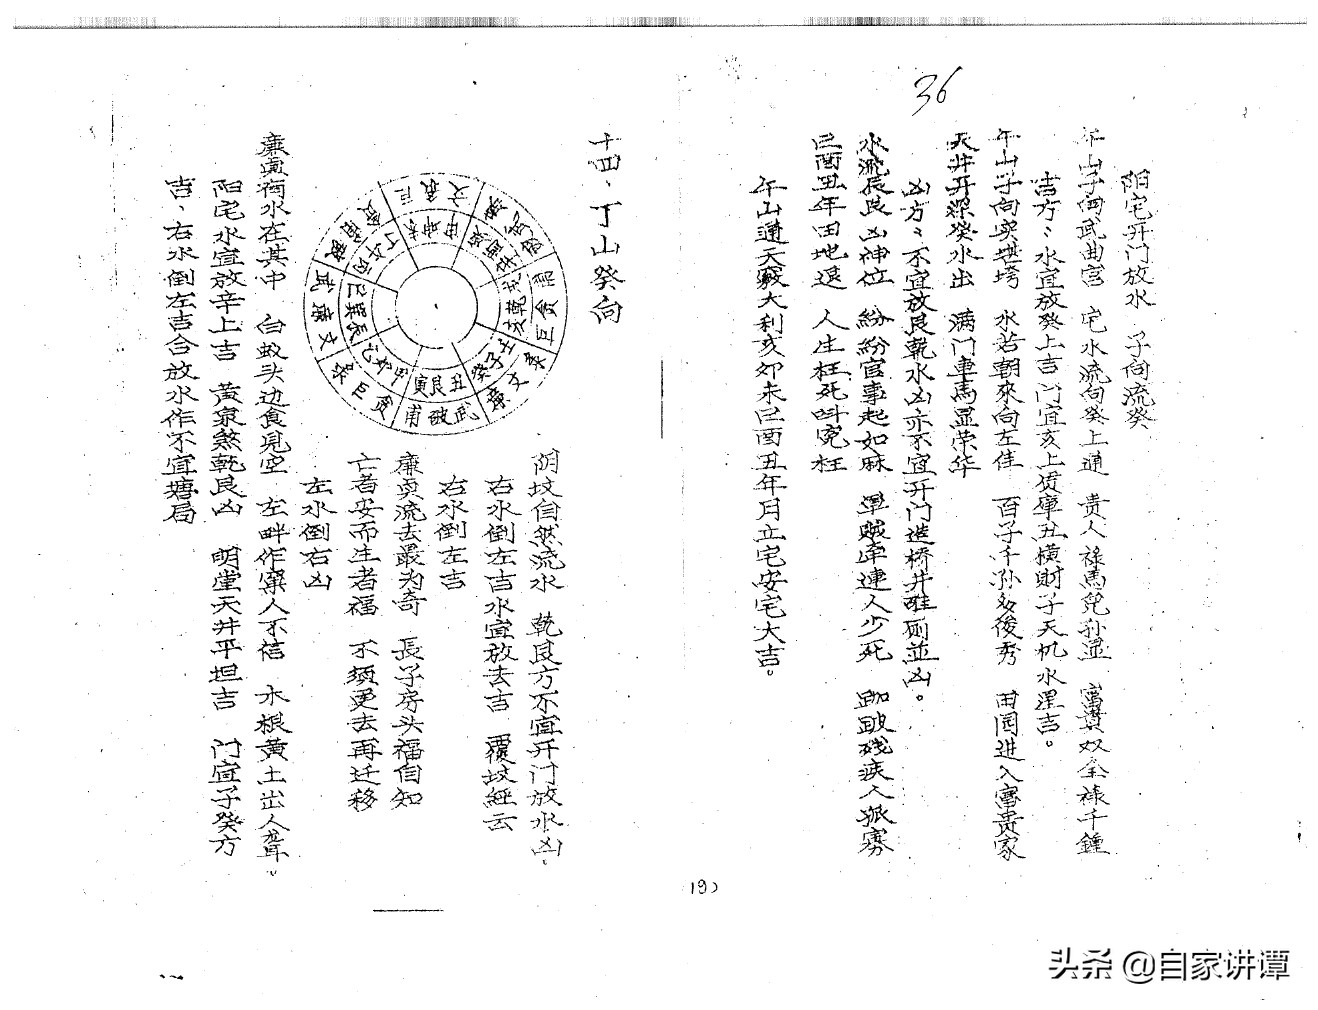 36
阳宅开门放水 子向流癸
午山子向武曲宫 宅水流向癸上通 贵人禄马兒孙显 富貴奴全禄千鍾
吉方：水宜放癸上吉门宜亥上货庫丑横財子天机水星吉。
午山子向实堪垮 水若朝來向左佳 百子千孙多俊秀 田园进入富贵家
天井开深癸水出 满门車馬显荣华
凶方：不宜放艮乾水凶亦不宜开门造桥井碓厕並凶。
水流辰艮凶神位 紛紛官事起如麻 軍贼牵連人少死 跏跛残疾人孤寡
巳酉丑年田地退 人生枉死叫冤枉
午山通天竅大利亥卯未巳酉丑年月立宅安宅大吉。
19)
十四、丁山癸向
阴坟自然流水 乾艮方不宜开门放水凶。
右水倒左吉水宜放去吉 覆坟經云
右水倒左吉
廉贞流去最为奇 長子房头福自知
亡者安而生者福 不须更去再迁移
左水倒右凶
廉貞有水在其中 白蚁头边食見空 左畔作窠人不信 木根黃土出人聋。
阳宅水宜放辛上吉 黃泉煞乾艮凶 明堂天井平坦吉 门宜子癸方
吉、右水倒左吉合放水作不宜塘局
头条 @自家讲谭